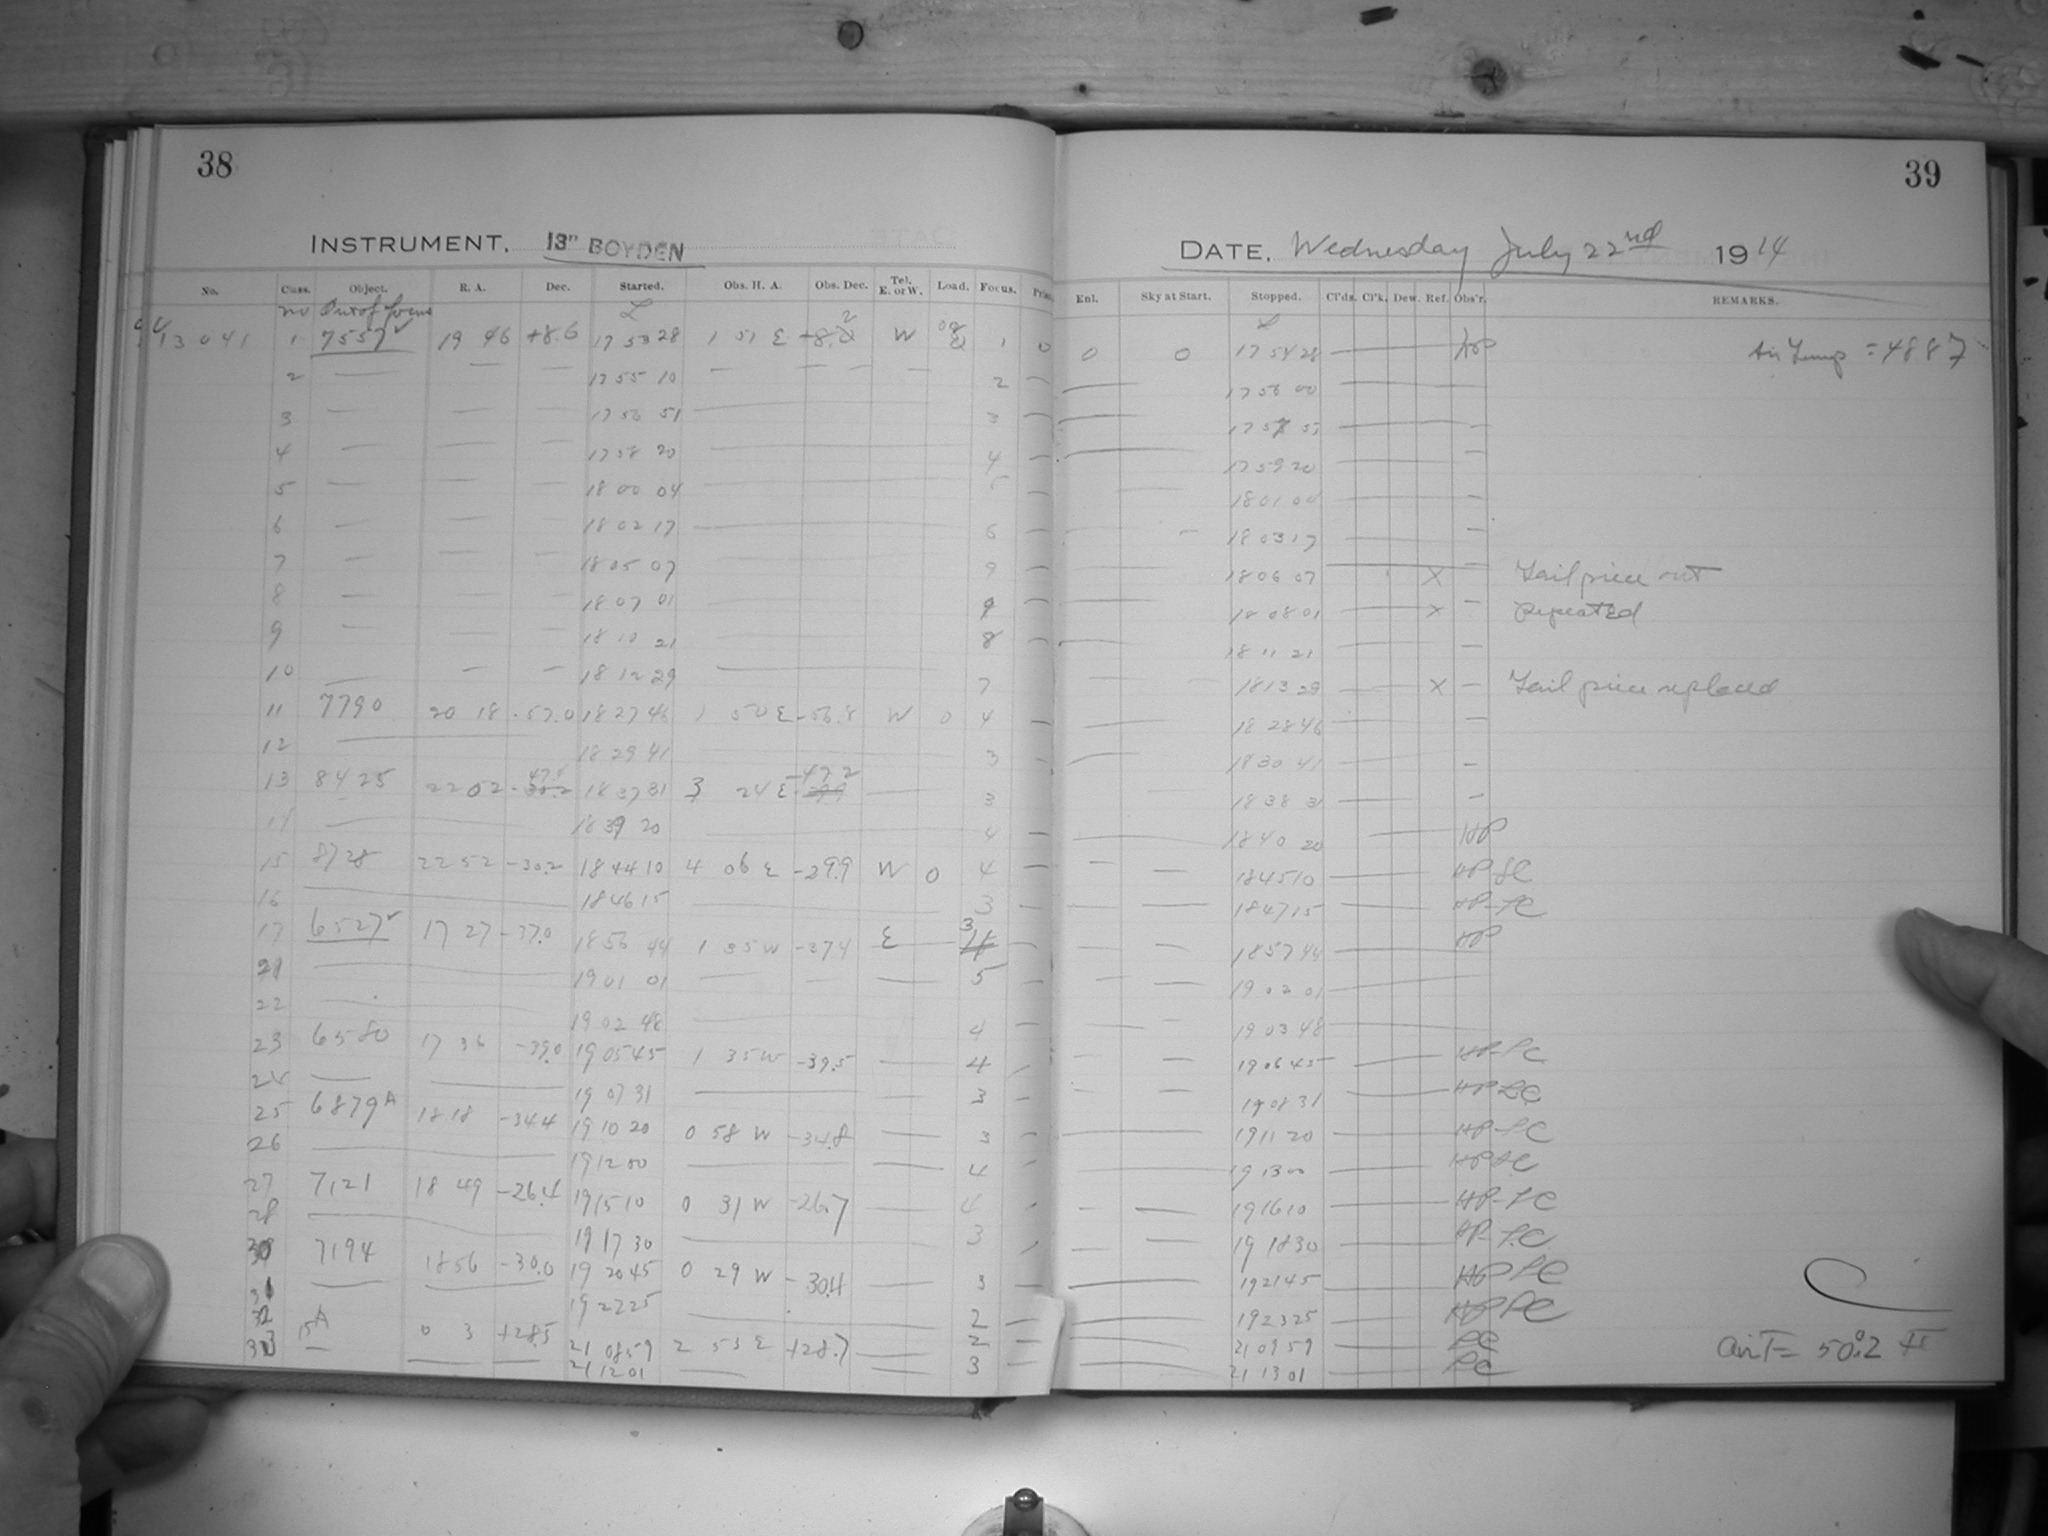 38
INSTRUMENT. 13" BOYDEN
No. Class. Object. R. A. Dec. Started. Obs. H. A. Obs. Dec. Tel. E. or W. Load. Focus.
no Out of focus
13041 1 7557 19 46 +8.6 17 53 28 1 51 E W 1 0
2 — — — 17 55 10 — — — — 2 —
3 — — — 17 56 51 — 3 —
4 — — — 17 58 20 — 4 —
5 — — — 18 00 04 — —
6 — — — 18 02 17 — 6 —
7 — — — 18 05 07 — 9 —
8 — — — 18 07 01 — 9 —
9 — — — 18 10 21 — 8 —
10 — — — 18 12 29 — 7
11 7790 20 18 -57.0 18 27 46 1 50 E -56.8 W 0 4 —
12 — 18 29 41 3 —
13 8425 22 02 -47.5 18 37 31 3 24 E -47.2 — 3
14 — 18 39 20 — 4 —
15 8728 22 52 -30.2 18 44 10 4 06 E -29.9 W 0 4 —
16 — 18 46 15 — 3 —
17 6527 17 27 -37.0 18 56 44 1 35 W -37.4 E — 3 —
21 — 19 01 01 — — — 5 —
22 — 19 02 48 — 4 —
23 6580 17 36 -39.0 19 05 45 1 35 W -39.5 — 4
24 — — 19 07 31 — — 3 —
25 6879 A 18 18 -34.4 19 10 20 0 58 W -34.8 — 3
26 — 19 12 00 — — 4 —
27 7121 18 49 -26.4 19 15 10 0 31 W -26.7 — 4
28 — 19 17 30 — 3
30 7194 18 56 -30.0 19 20 45 0 29 W -30.4 — 3 —
31 — — 19 22 25 — 2 —
32 15A 0 3 +28.5 21 08 59 2 53 E +28.7 — 2 —
33 — — — 21 12 01 — — 3 —
39
DATE. Wednesday July 22nd 1914
Enl. Sky at Start. Stopped. Cl'ds. Cl'k. Dew. Ref. Obs'r. REMARKS.
0 0 17 54 28 — HP Air Temp = 48.87
— 17 56 00 —
— 17 57 51 — —
— 17 59 20 — —
— 18 01 04 — —
— — 18 03 17 — —
18 06 07 — X — Tail piece out
— 18 08 01 — X — Repeated
— 18 11 21 — —
— — 18 13 29 — X — Tail piece replaced
— 18 28 46 — —
— 18 30 41 — —
18 38 31 — —
— 18 40 20 — HP
— — 18 45 10 — HP
— — 18 47 15 — HP
— — 18 57 44 — HP
— — 19 02 01 —
— — 19 03 48 —
— — 19 06 45 — HP-PC
— — 19 08 31 — HP
— 19 11 20 — HP-PC
— 19 13 00 — HP
— — 19 16 10 — HP
— — 19 18 30 — HP
— 19 21 45 — HP PC
— 19 23 25 — HP PC
— 21 09 59 — PC
— 21 13 01 — PC
Air T = 50.2